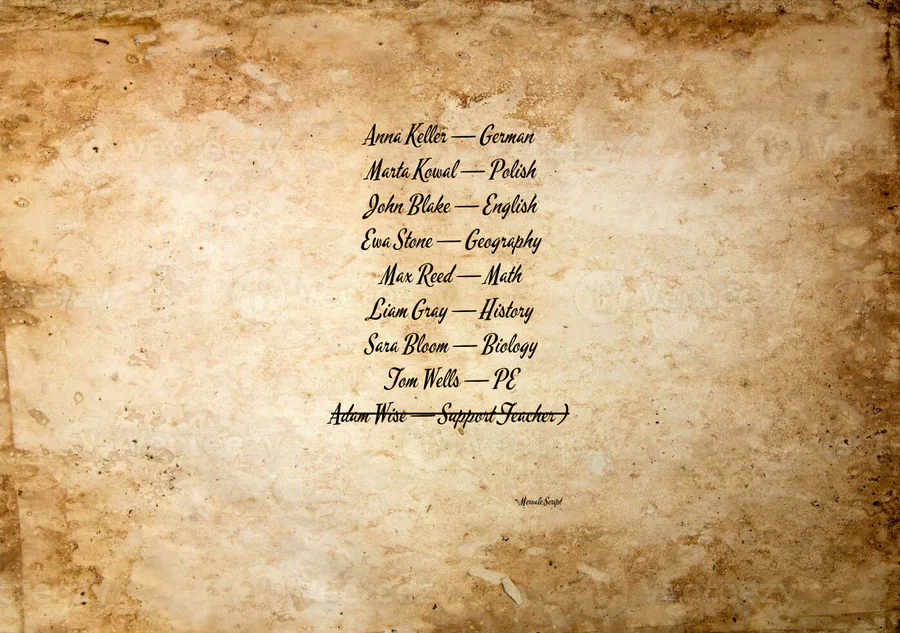 Anna Keller — German
Marta Kowal — Polish
John Blake — English
Ewa Stone — Geography
Max Reed — Math
Liam Gray — History
Sara Bloom — Biology
Tom Wells — PE
Adam Wise — Support Teacher )
*Mervale Script